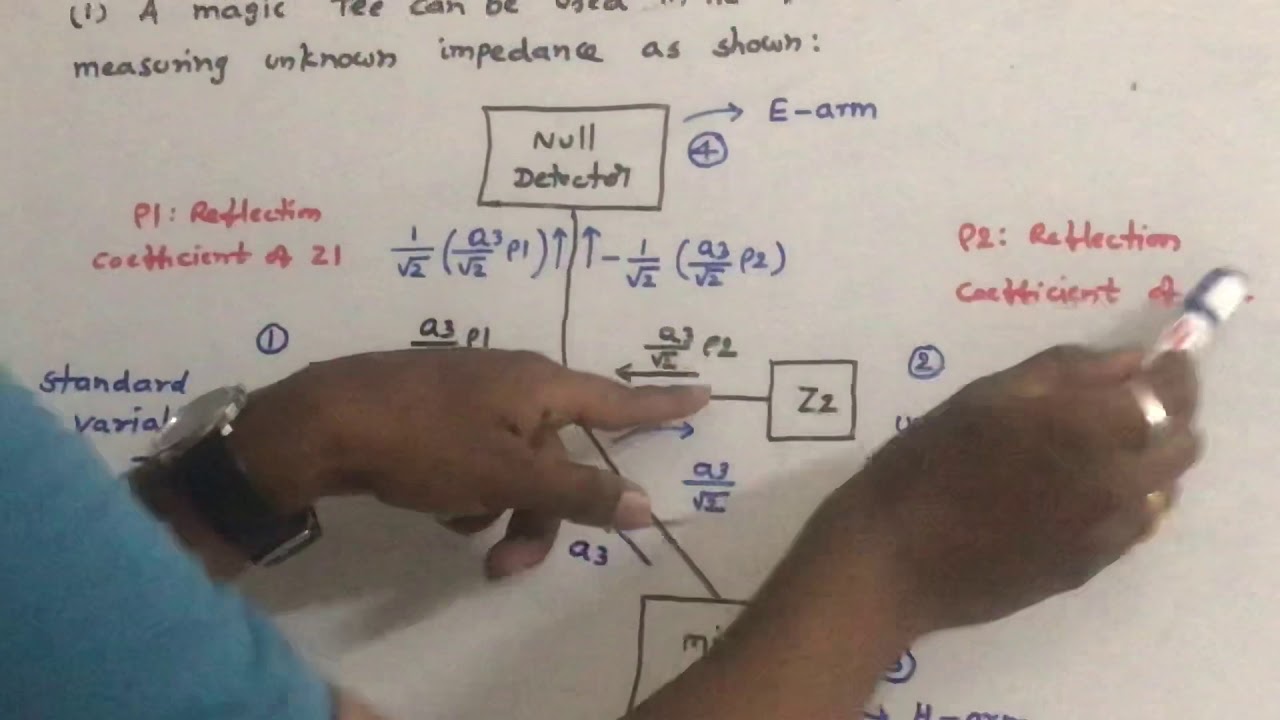 (1) A magic Tee can be used
measuring unknown impedance as shown:
Null
Detector
E-arm
4
ρ1: Reflection
coefficient of Z1
1/√2 (a3/√2 ρ1) ↑ ↑ - 1/√2 (a3/√2 ρ2)
ρ2: Reflection
coefficient of
1
a3 ρ1
a3/√2 ρ2
2
standard
Z2
a3/√2
a3
3